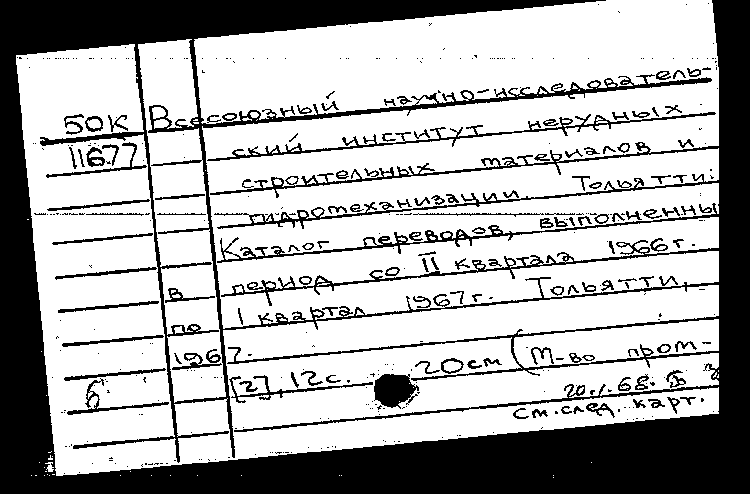 50К Всесоюзный научно-исследователь-
11677 ский институт нерудных
строительных материалов и
гидромеханизации. Тольятти.
Каталог переводов, выполненны
в период со II квартала 1966г.
по I квартал 1967г. Тольятти,
1967.
б [2], 12с. 20см (М-во пром-
20.1.68.
См. след. карт.